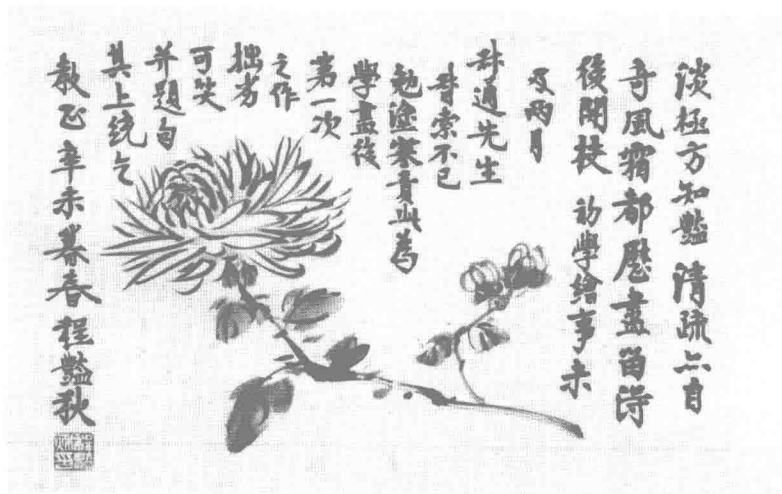 淡極方知豔清疏亦自
奇風霜都歷盡留待
後開枝 初學繪事未
及兩月
科通先生
督索不已
勉塗塞責此為
學畫後
第一次
之作
拙劣
可笑
并題句
其上統乞
教正辛未暮春程豔秋